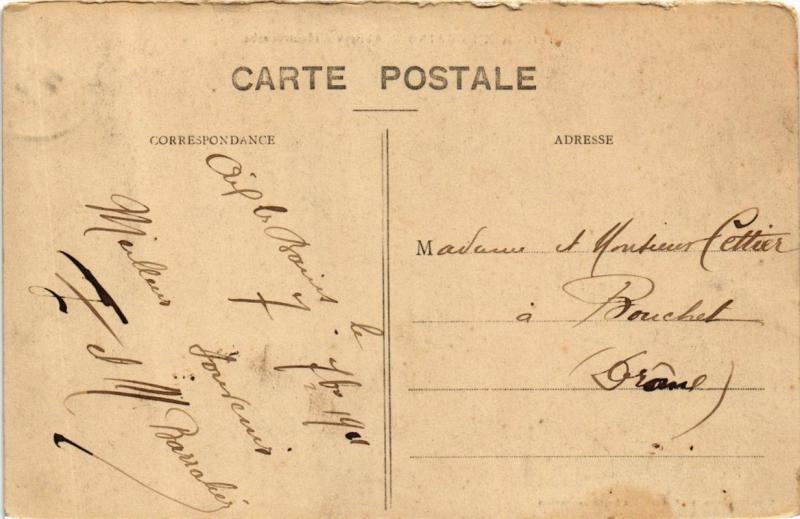 CARTE POSTALE
CORRESPONDANCE
Aix les Bains le
7 - 7bre 1911
Meilleurs
Souvenirs
et M Barralier
ADRESSE
Madame et Monsieur Cettier
à Bouchet
(Drôme)